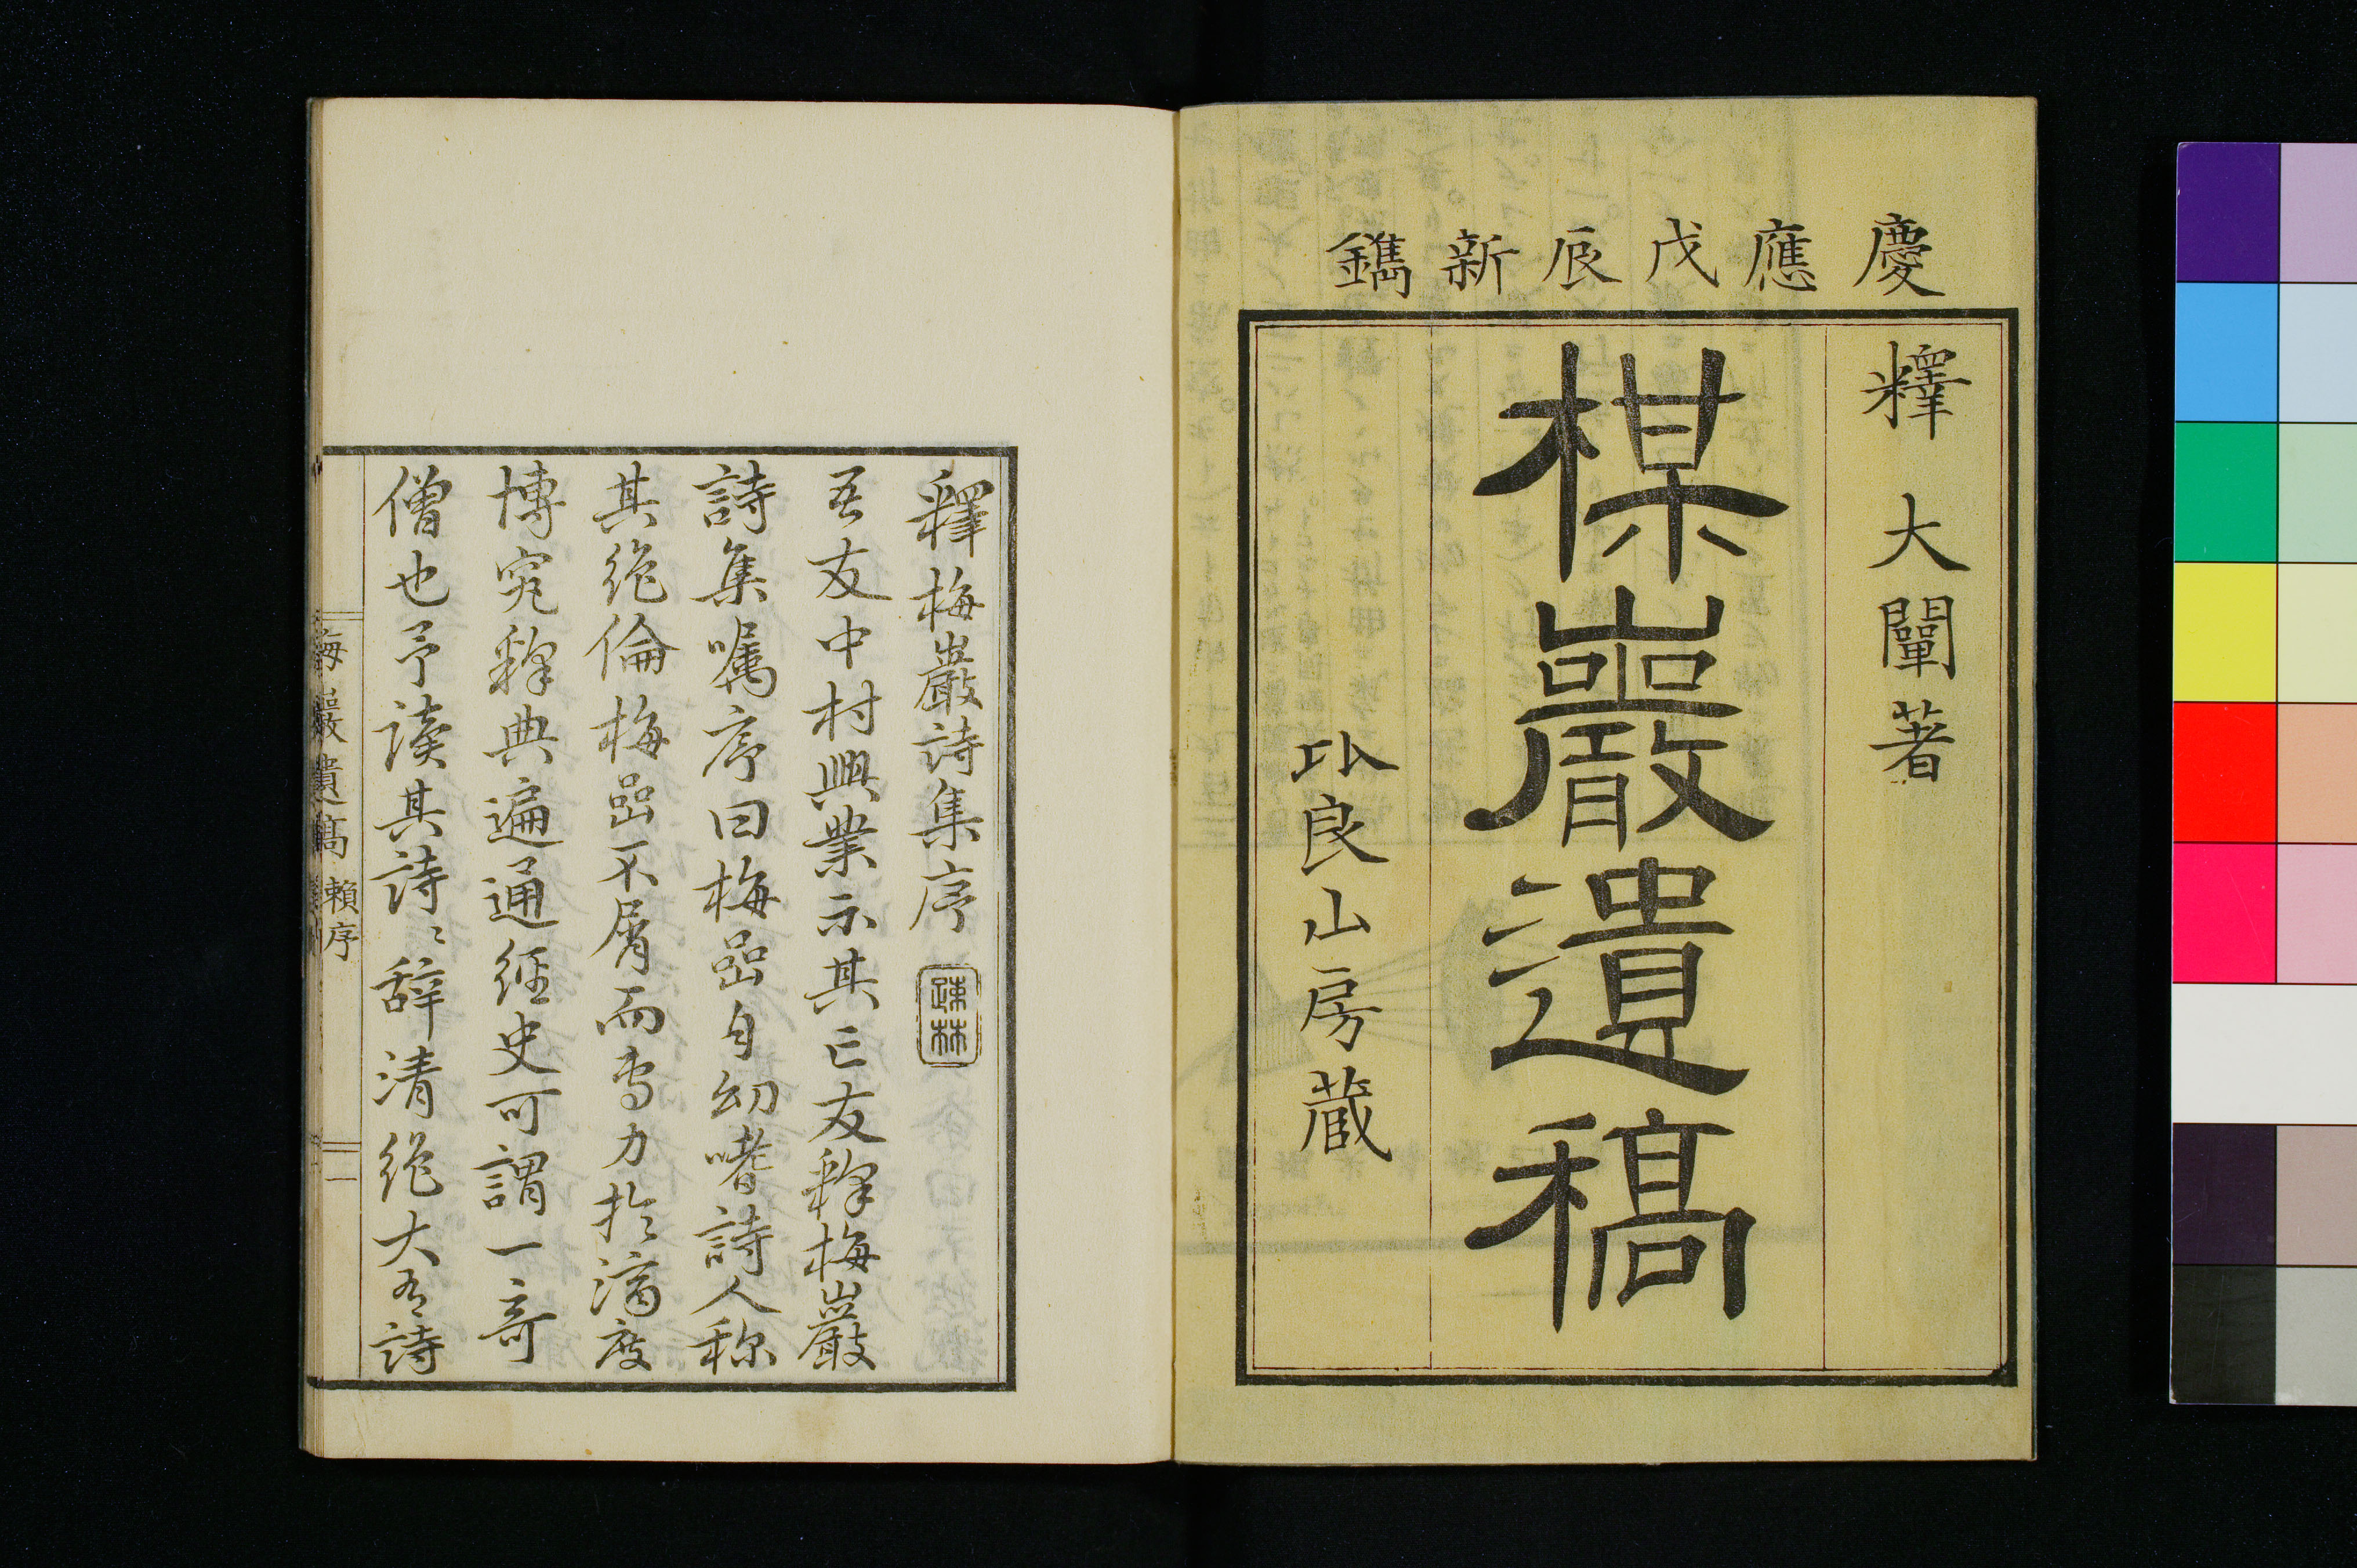 慶應戊辰新鐫
釋 大闡著
楳巖遺稿
比良山房蔵
釋梅巖詩集序
疎林
吾友中村興業示其亡友釋梅巖
詩集嘱序曰梅嵒自幼嗜詩人称
其絶倫梅嵒不屑而専力於済度
博究釋典遍通經史可謂一奇
僧也予讀其詩〻辞清絶大有詩
梅巖遺稿 頼序 一